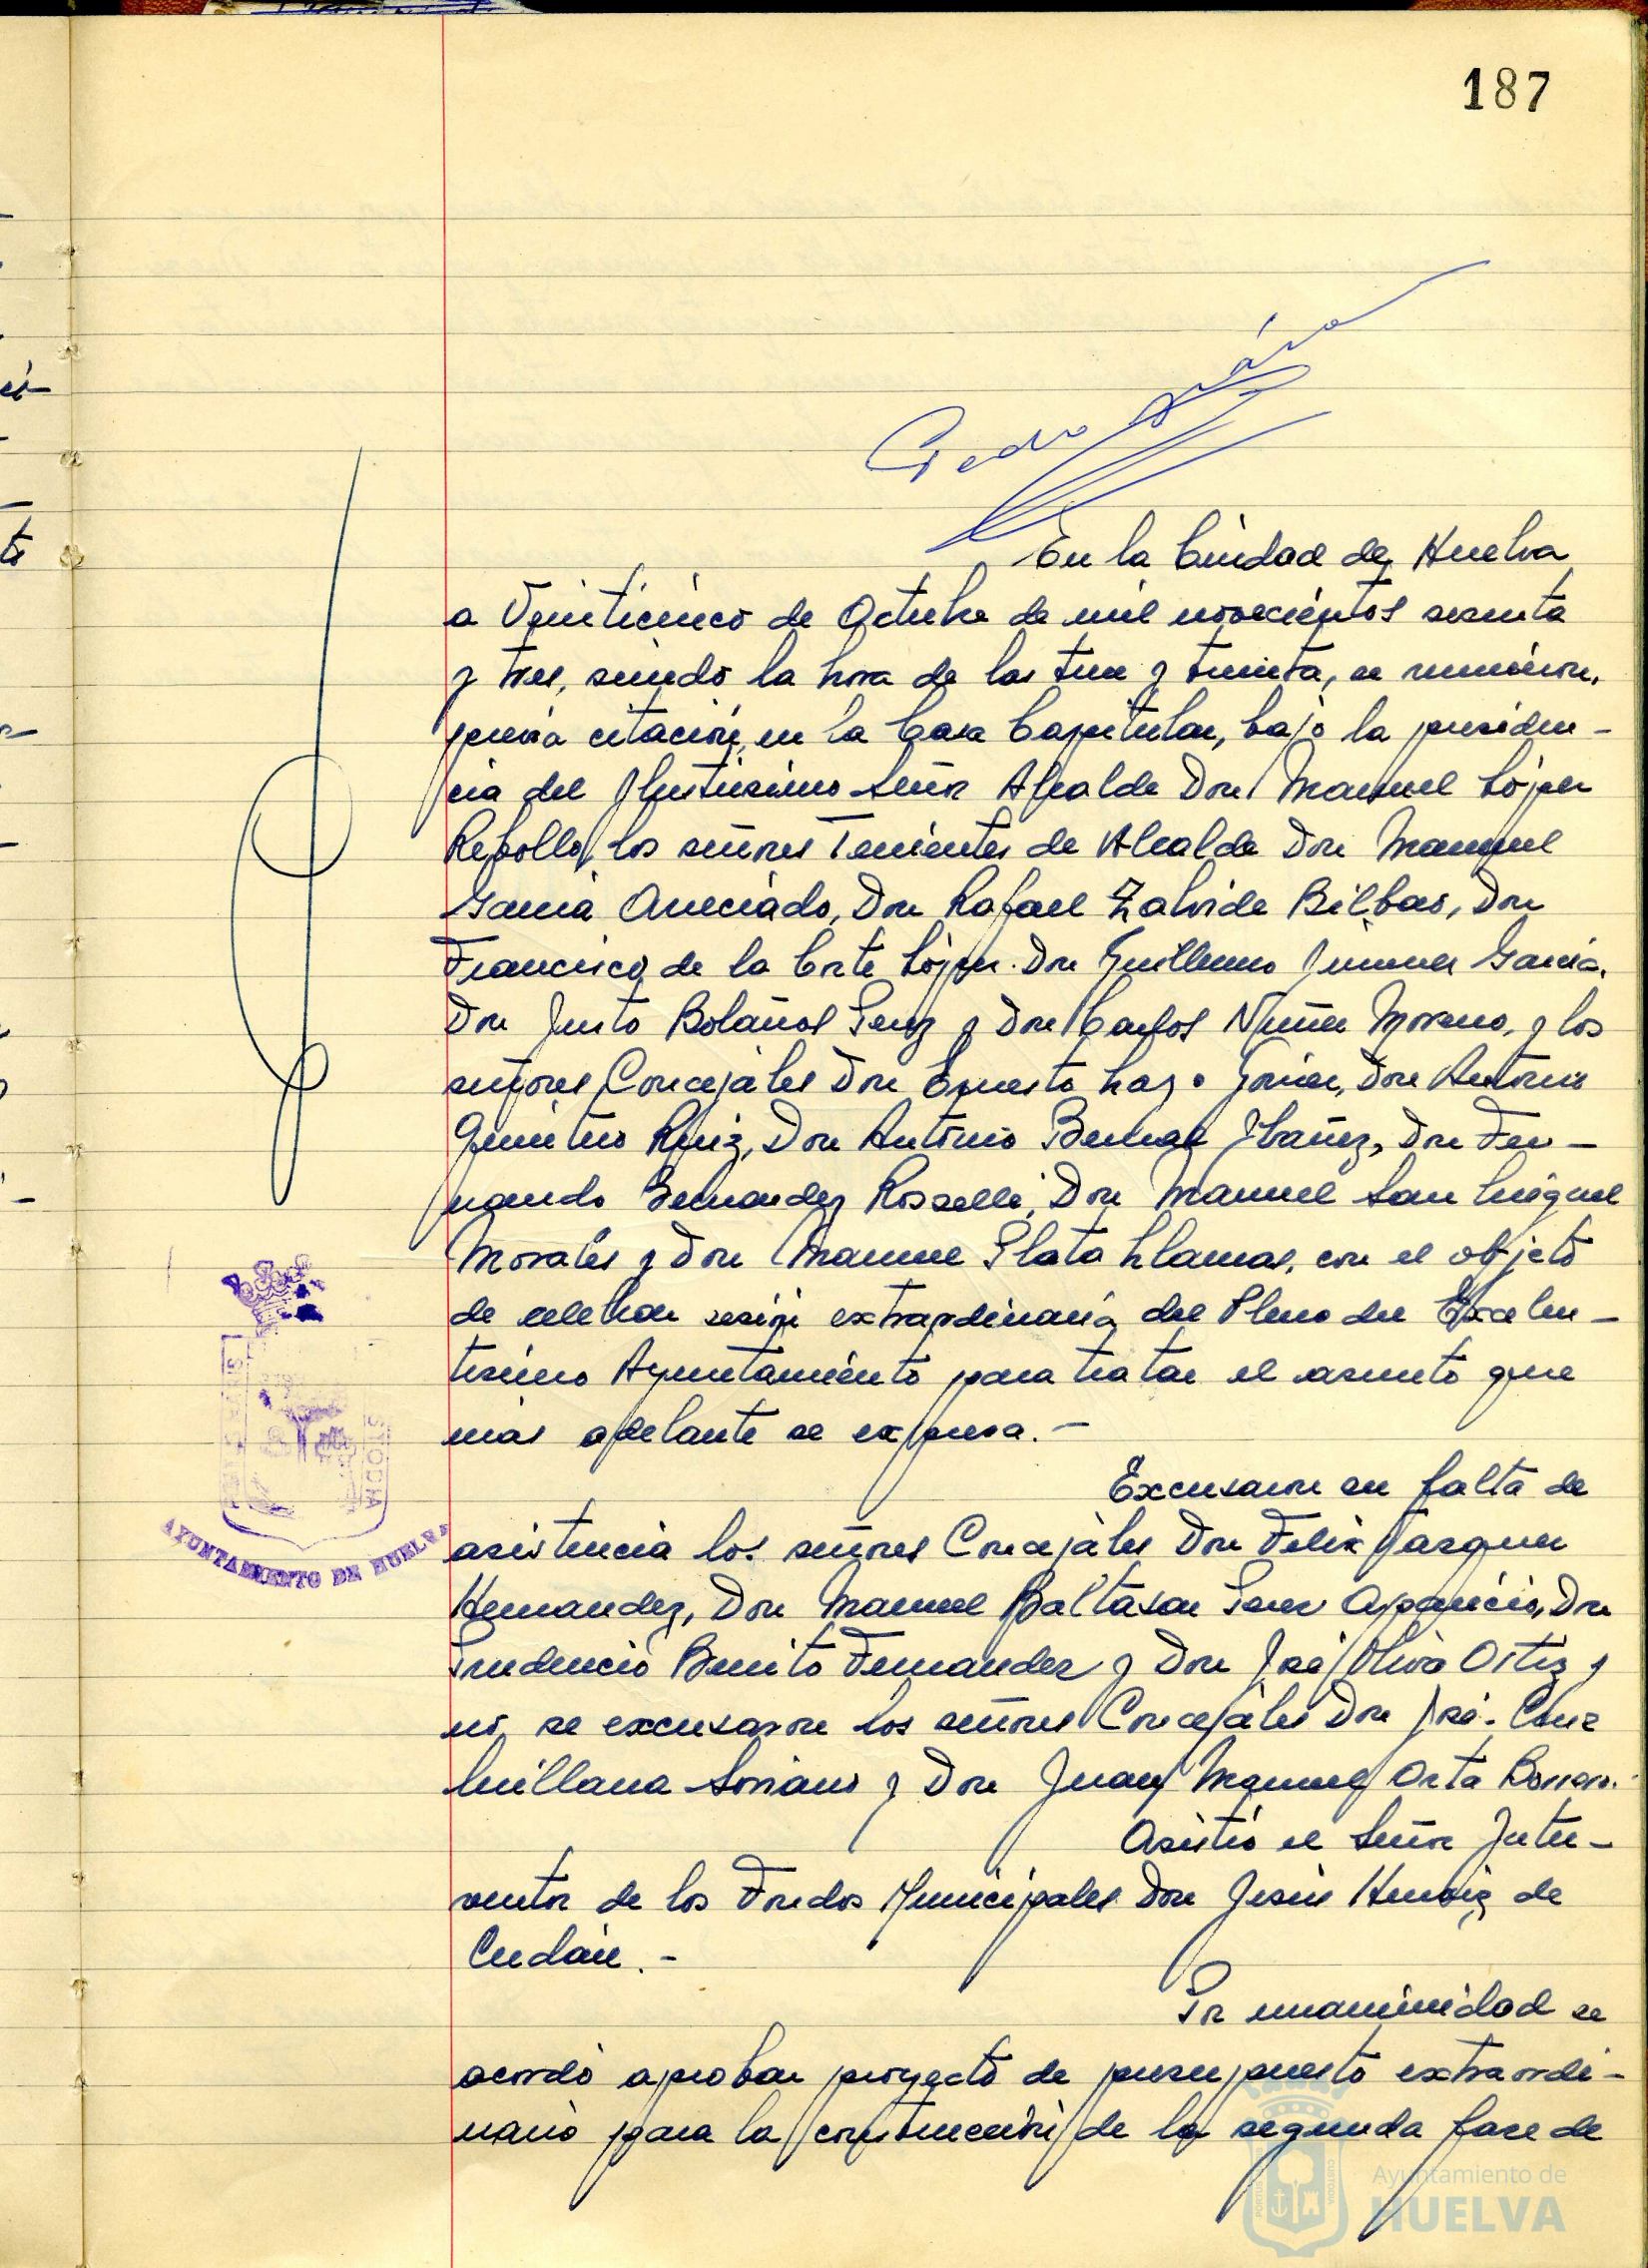 187
Pedro
En la Ciudad de Huelva
a Veinticinco de Octubre de mil novecientos sesenta
y tres, siendo la hora de las trece y treinta, se reunieron,
previa citación, en la Casa Capitular, bajo la presiden-
cia del Ilustrisimo Señor Alcalde Don Manuel López
Rebollo, los señores Tenientes de Alcalde Don Manuel
Garcia Aneciado, Don Rafael Zalvide Bilbao, Don
Francisco de la Corte López. Don Guillermo Jimenez Garcia,
Don Justo Bolaños Perez y Don Carlos Nuñez Moreno, y los
señores Concejales Don Ernesto Lazo Gomez, Don Antonio
Quintero Ruiz, Don Antonio Bernal Ibañez, Don Fer-
nando Bernandez Rosselli, Don Manuel San Miguel
Morales y Don Manuel Plata Llamas, con el objeto
de celebrar sesión extraordinaria del Pleno del Excelen-
tisimo Ayuntamiento para tratar el asunto que
más adelante se expresa.-
Excusaron su falta de
asistencia los señores Concejales Don Felix Vazquez
Hernandez, Don Manuel Baltasar Perez Aparicio, Don
Prudencio Benito Fernandez y Don José Oliva Ortiz y
no se excusaron los señores Concejales Don José-Cruz
Millana Soriano y Don Juan Manuel Orta Borrero.
Asistió el Señor Inter-
ventor de los Fondos Municipales Don Jesús de
.-
Por unanimidad se
acordó aprobar proyecto de presupuesto extraordi-
nario para la construcción de la segunda fase de
AYUNTAMIENTO DE HUELVA
Ayuntamiento de
HUELVA